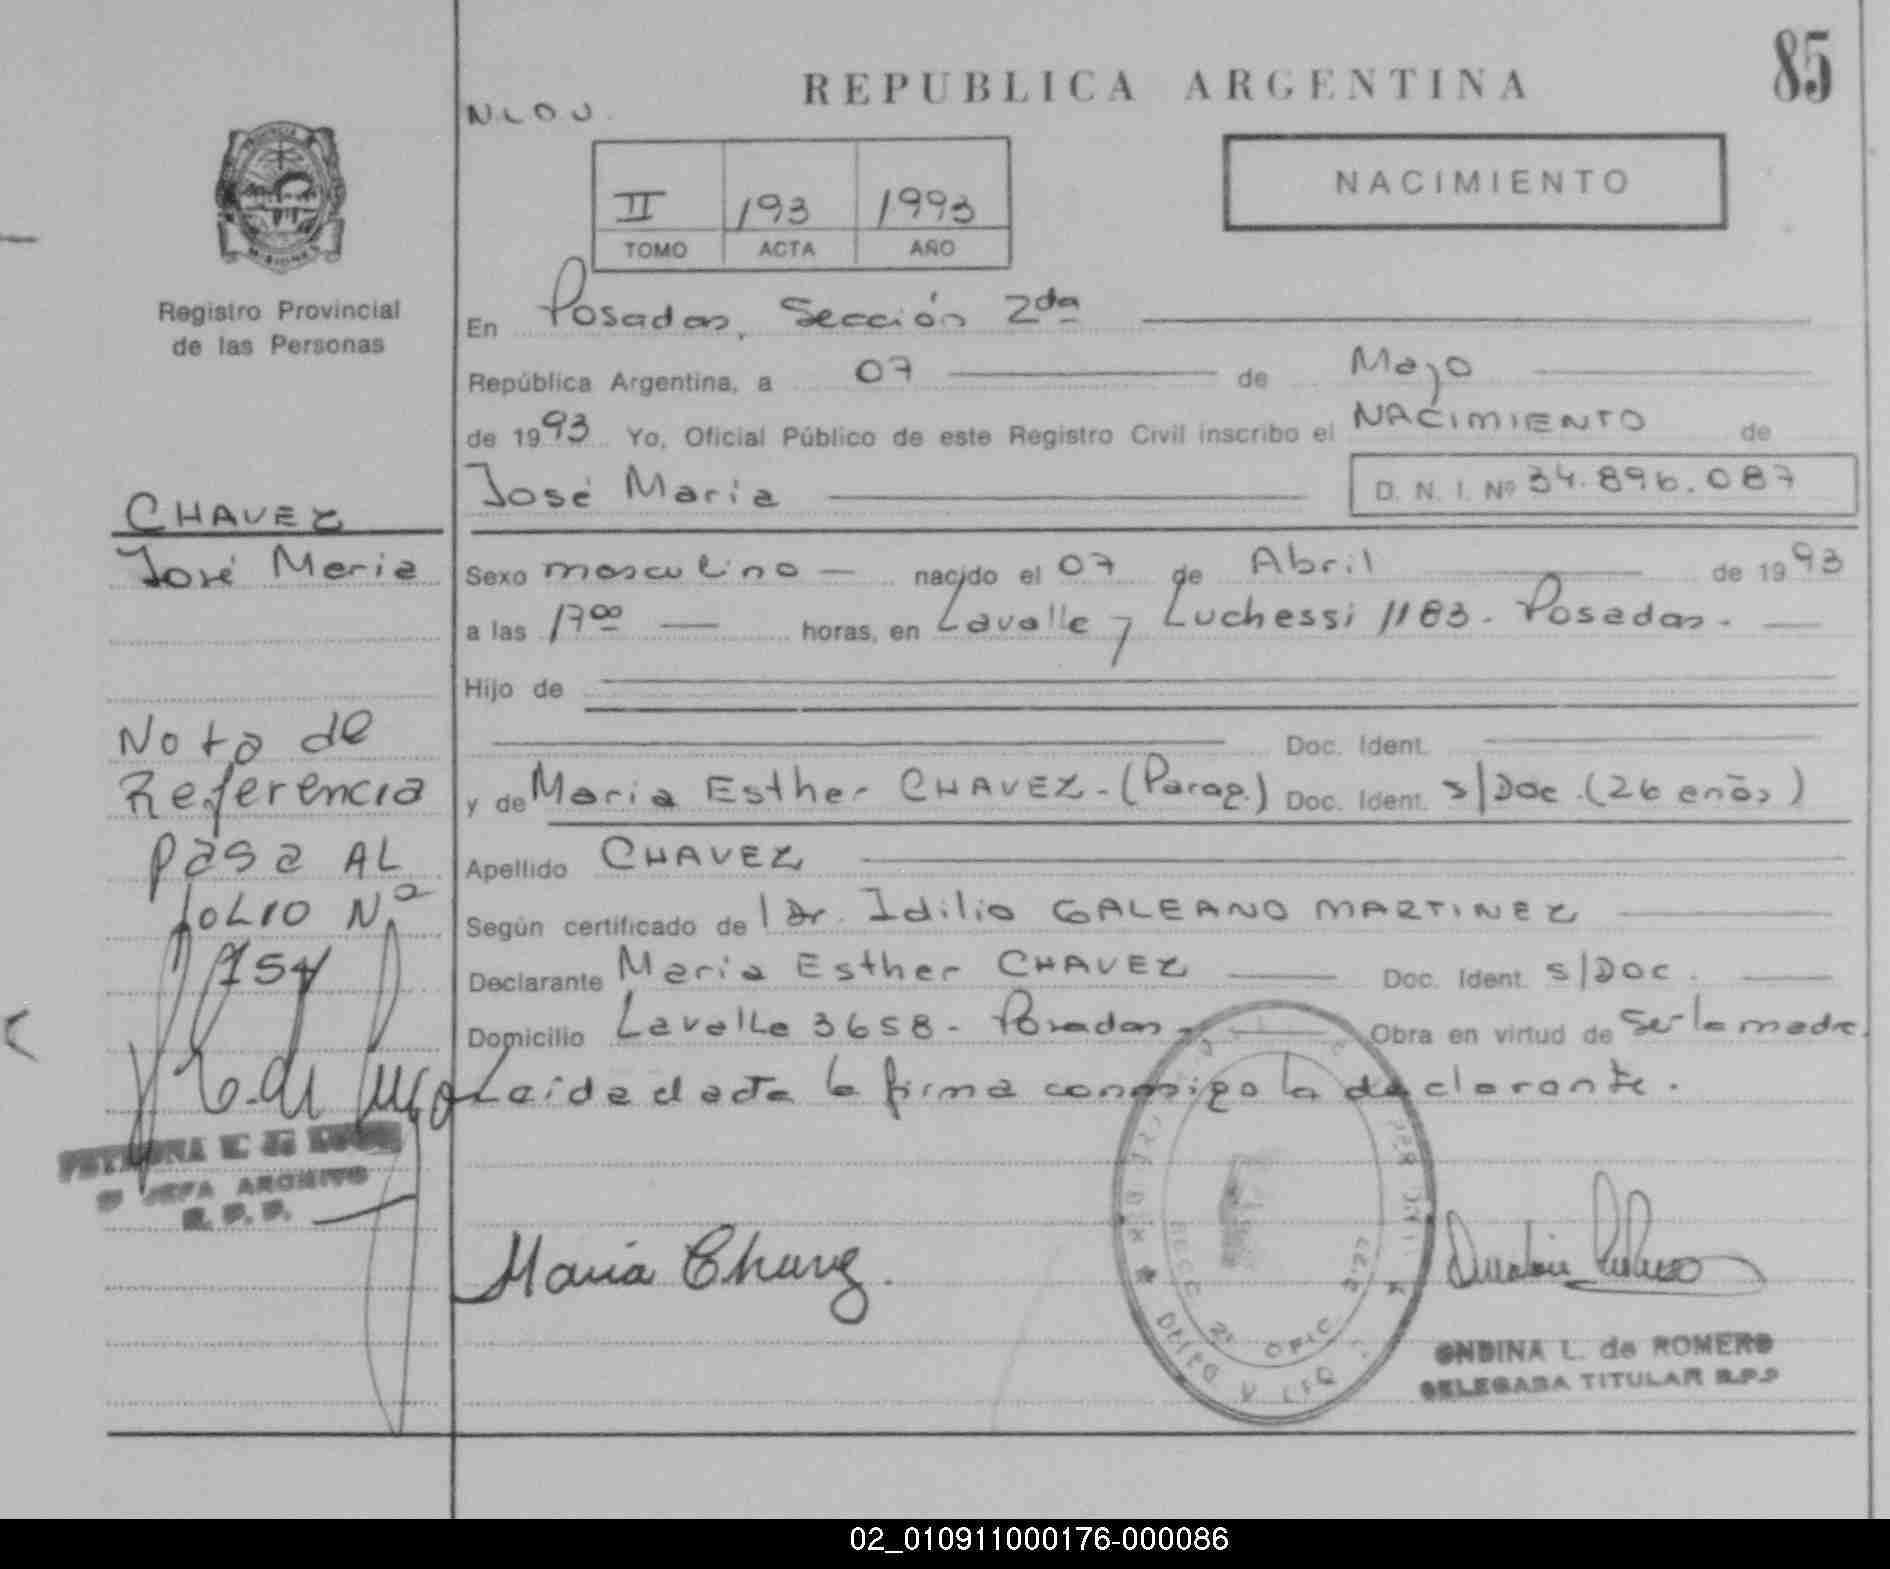 85
REPUBLICA ARGENTINA
N.L.O.U.
NACIMIENTO
II 193 1993
TOMO ACTA AÑO
Registro Provincial
de las Personas
En Posadas, Sección 2da
República Argentina, a 07 de Mayo
de 1993 Yo, Oficial Público de este Registro Civil inscribo el NACIMIENTO de
José Maria D. N. I. Nº 34.896.087
CHAVEZ
José Maria
Sexo masculino nacido el 07 de Abril de 1993
a las 17 00 horas, en Lavalle y Luchessi 1183. Posadas.
Hijo de
Doc. Ident.
y de Maria Esther CHAVEZ - (Parag.) Doc. Ident. s/Doc. (26 años)
Apellido CHAVEZ
Según certificado de Dr. Idilio GALEANO MARTINEZ
Declarante Maria Esther CHAVEZ Doc. Ident. s/Doc.
Domicilio Lavalle 3658 - Posadas - Obra en virtud de ser la madre.
Leida el acta la firma conmigo la declarante.
Nota de
Referencia
pasa AL
folio Nº
154
JEFA ARCHIVO
R. P. P.
Maria Chavez.
2ª OFIC
ONDINA L. de ROMERO
DELEGADA TITULAR R.P.P
02_010911000176-000086